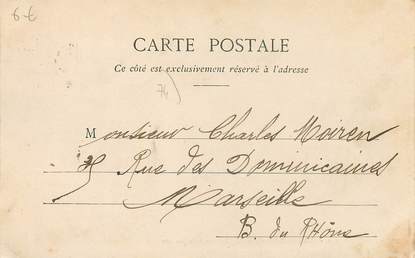 6 €
CARTE POSTALE
Ce côté est exclusivement réservé à l'adresse
74
Monsieur Charles Moiren
Rue des Dominicaines
Marseille
B. du Rhône